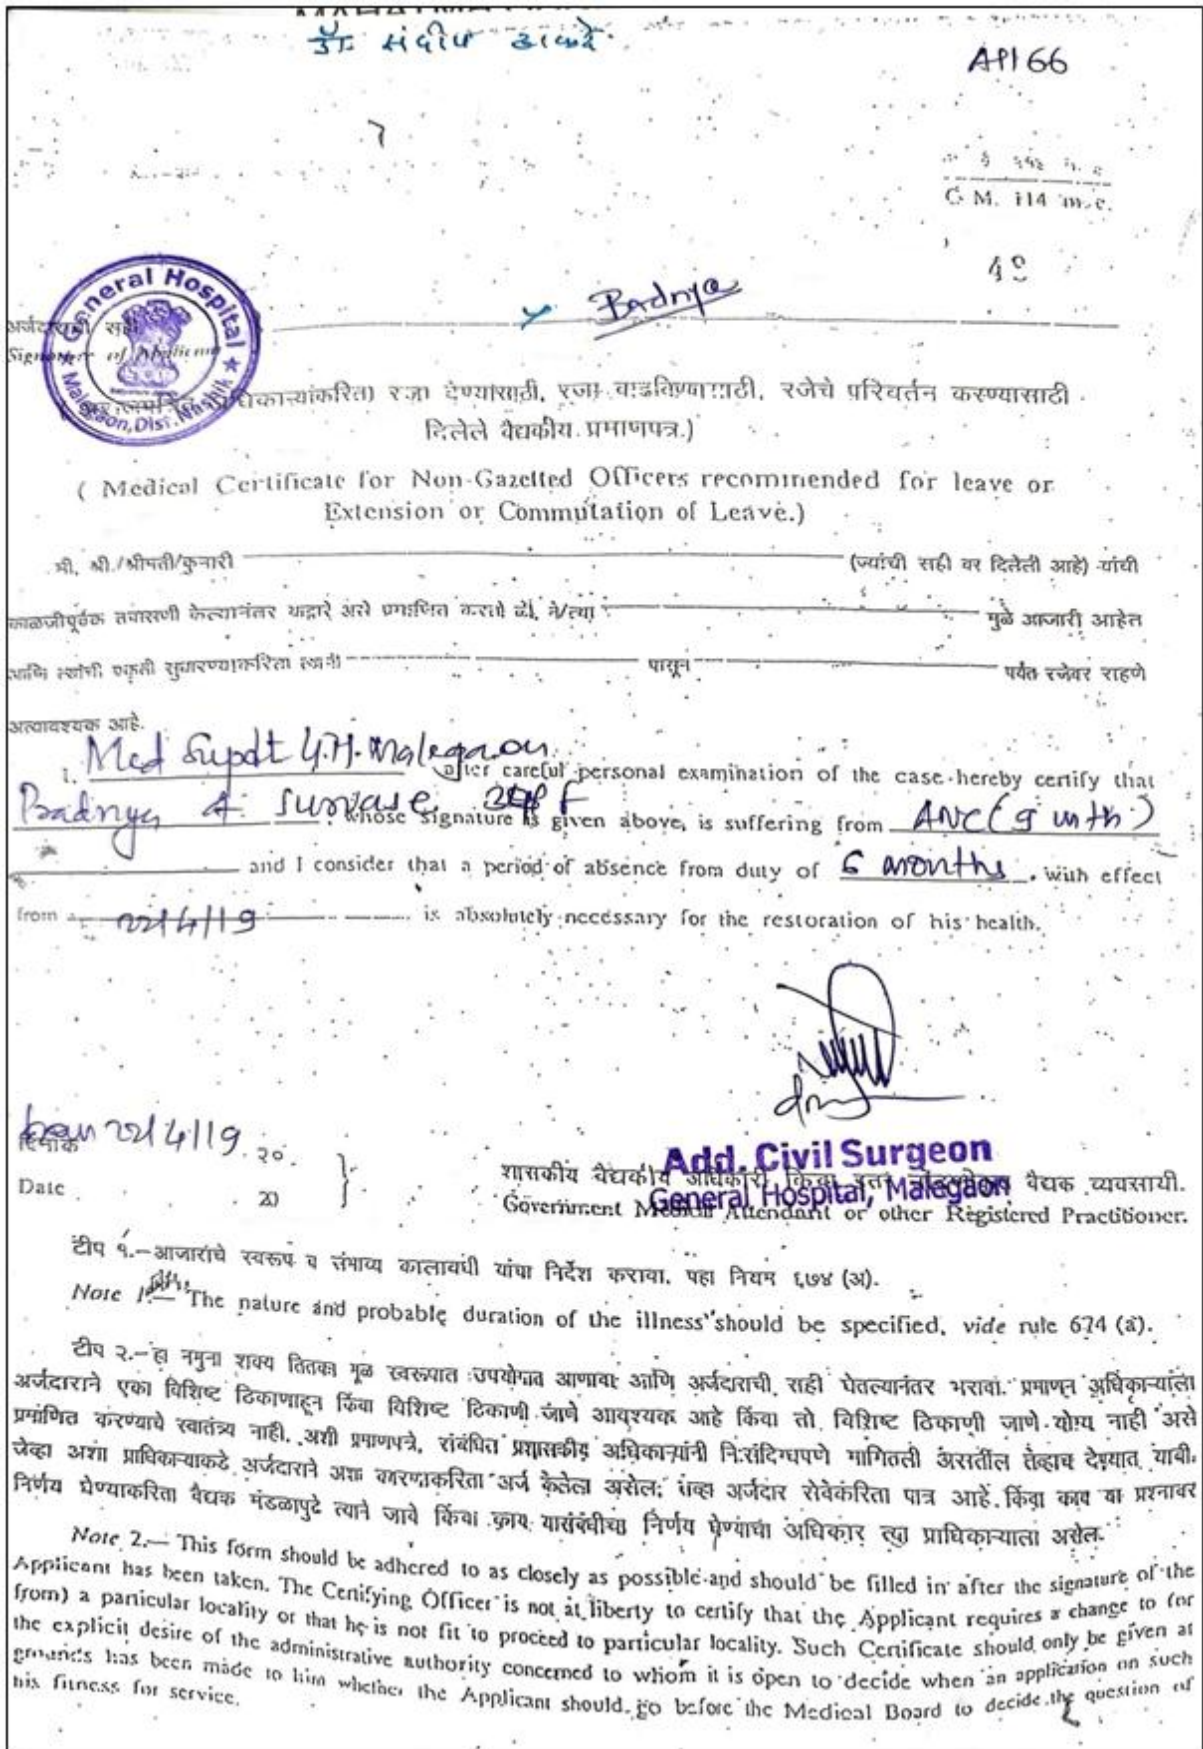 डॉ. संदीप ठाकरे
API 66
C. M. 114 m.c.
Badnya
General Hospital
Malegaon, Dist. Nashik
अर्जदाराची सही
Signature of Applicant
रजा देण्यासाठी, रजा वाढविण्यासाठी, रजेचे परिवर्तन करण्यासाठी
दिलेले वैद्यकीय प्रमाणपत्र.)
( Medical Certificate for Non-Gazetted Officers recommended for leave or
Extension or Commutation of Leave.)
मी, श्री./श्रीमती/कुमारी (ज्यांची सही वर दिलेली आहे) यांची
काळजीपूर्वक तपासणी केल्यानंतर याद्वारे असे प्रमाणित करतो की, ते/त्या मुळे आजारी आहेत
आणि त्यांची प्रकृती सुधारण्याकरिता त्यांनी पासून पर्यंत रजेवर राहणे
अत्यावश्यक आहे.
I. Med Supdt G.H. Malegaon after careful personal examination of the case hereby certify that
Badnya A. Survase whose signature is given above, is suffering from ANC (9 mth)
and I consider that a period of absence from duty of 6 months, with effect
from 22/4/19 is absolutely necessary for the restoration of his health.
दिनांक 22/4/19 २०
Date 20
Add. Civil Surgeon
General Hospital, Malegaon
शासकीय वैद्यकीय अधिकारी किंवा इतर वैद्यक व्यवसायी.
Government Medical Attendant or other Registered Practitioner.
टीप १.—आजाराचे स्वरूप व संभाव्य कालावधी यांचा निर्देश करावा. पहा नियम ६७४ (अ).
Note 1.— The nature and probable duration of the illness should be specified, vide rule 674 (a).
टीप २.—हा नमुना शक्य तितका मूळ स्वरूपात उपयोगात आणावा आणि अर्जदाराची सही घेतल्यानंतर भरावा. प्रमाणन अधिकाऱ्यांला
अर्जदाराने एका विशिष्ट ठिकाणाहून किंवा विशिष्ट ठिकाणी जाणे आवश्यक आहे किंवा तो विशिष्ट ठिकाणी जाणे योग्य नाही असे
प्रमाणित करण्याचे स्वातंत्र्य नाही. अशी प्रमाणपत्रे, संबंधित प्रशासकीय अधिकाऱ्यांनी निःसंदिग्धपणे मागितली असतील तेव्हाच देण्यात यावी.
जेव्हा अशा प्राधिकाऱ्याकडे अर्जदाराने अशा कारणाकरिता अर्ज केलेला असेल; तेव्हा अर्जदार सेवेकरिता पात्र आहे किंवा काय या प्रश्नावर
निर्णय घेण्याकरिता वैद्यक मंडळापुढे त्याने जावे किंवा काय यासंबंधीचा निर्णय घेण्याचा अधिकार त्या प्राधिकाऱ्याला असेल.
Note 2.— This form should be adhered to as closely as possible and should be filled in after the signature of the
Applicant has been taken. The Certifying Officer is not at liberty to certify that the Applicant requires a change to (or
from) a particular locality or that he is not fit to proceed to particular locality. Such Certificate should only be given at
the explicit desire of the administrative authority concerned to whom it is open to decide when an application on such
grounds has been made to him whether the Applicant should go before the Medical Board to decide the question of
his fitness for service.